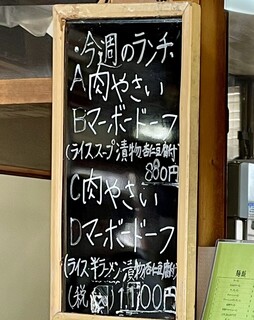 ・今週のランチ
A肉やさい
Bマーボードーフ
(ライス スープ 漬物 杏仁豆腐付)
880円
C肉やさい
Dマーボードーフ
(ライス 半ラーメン 漬物 杏仁豆腐付)
(税込)1,100円